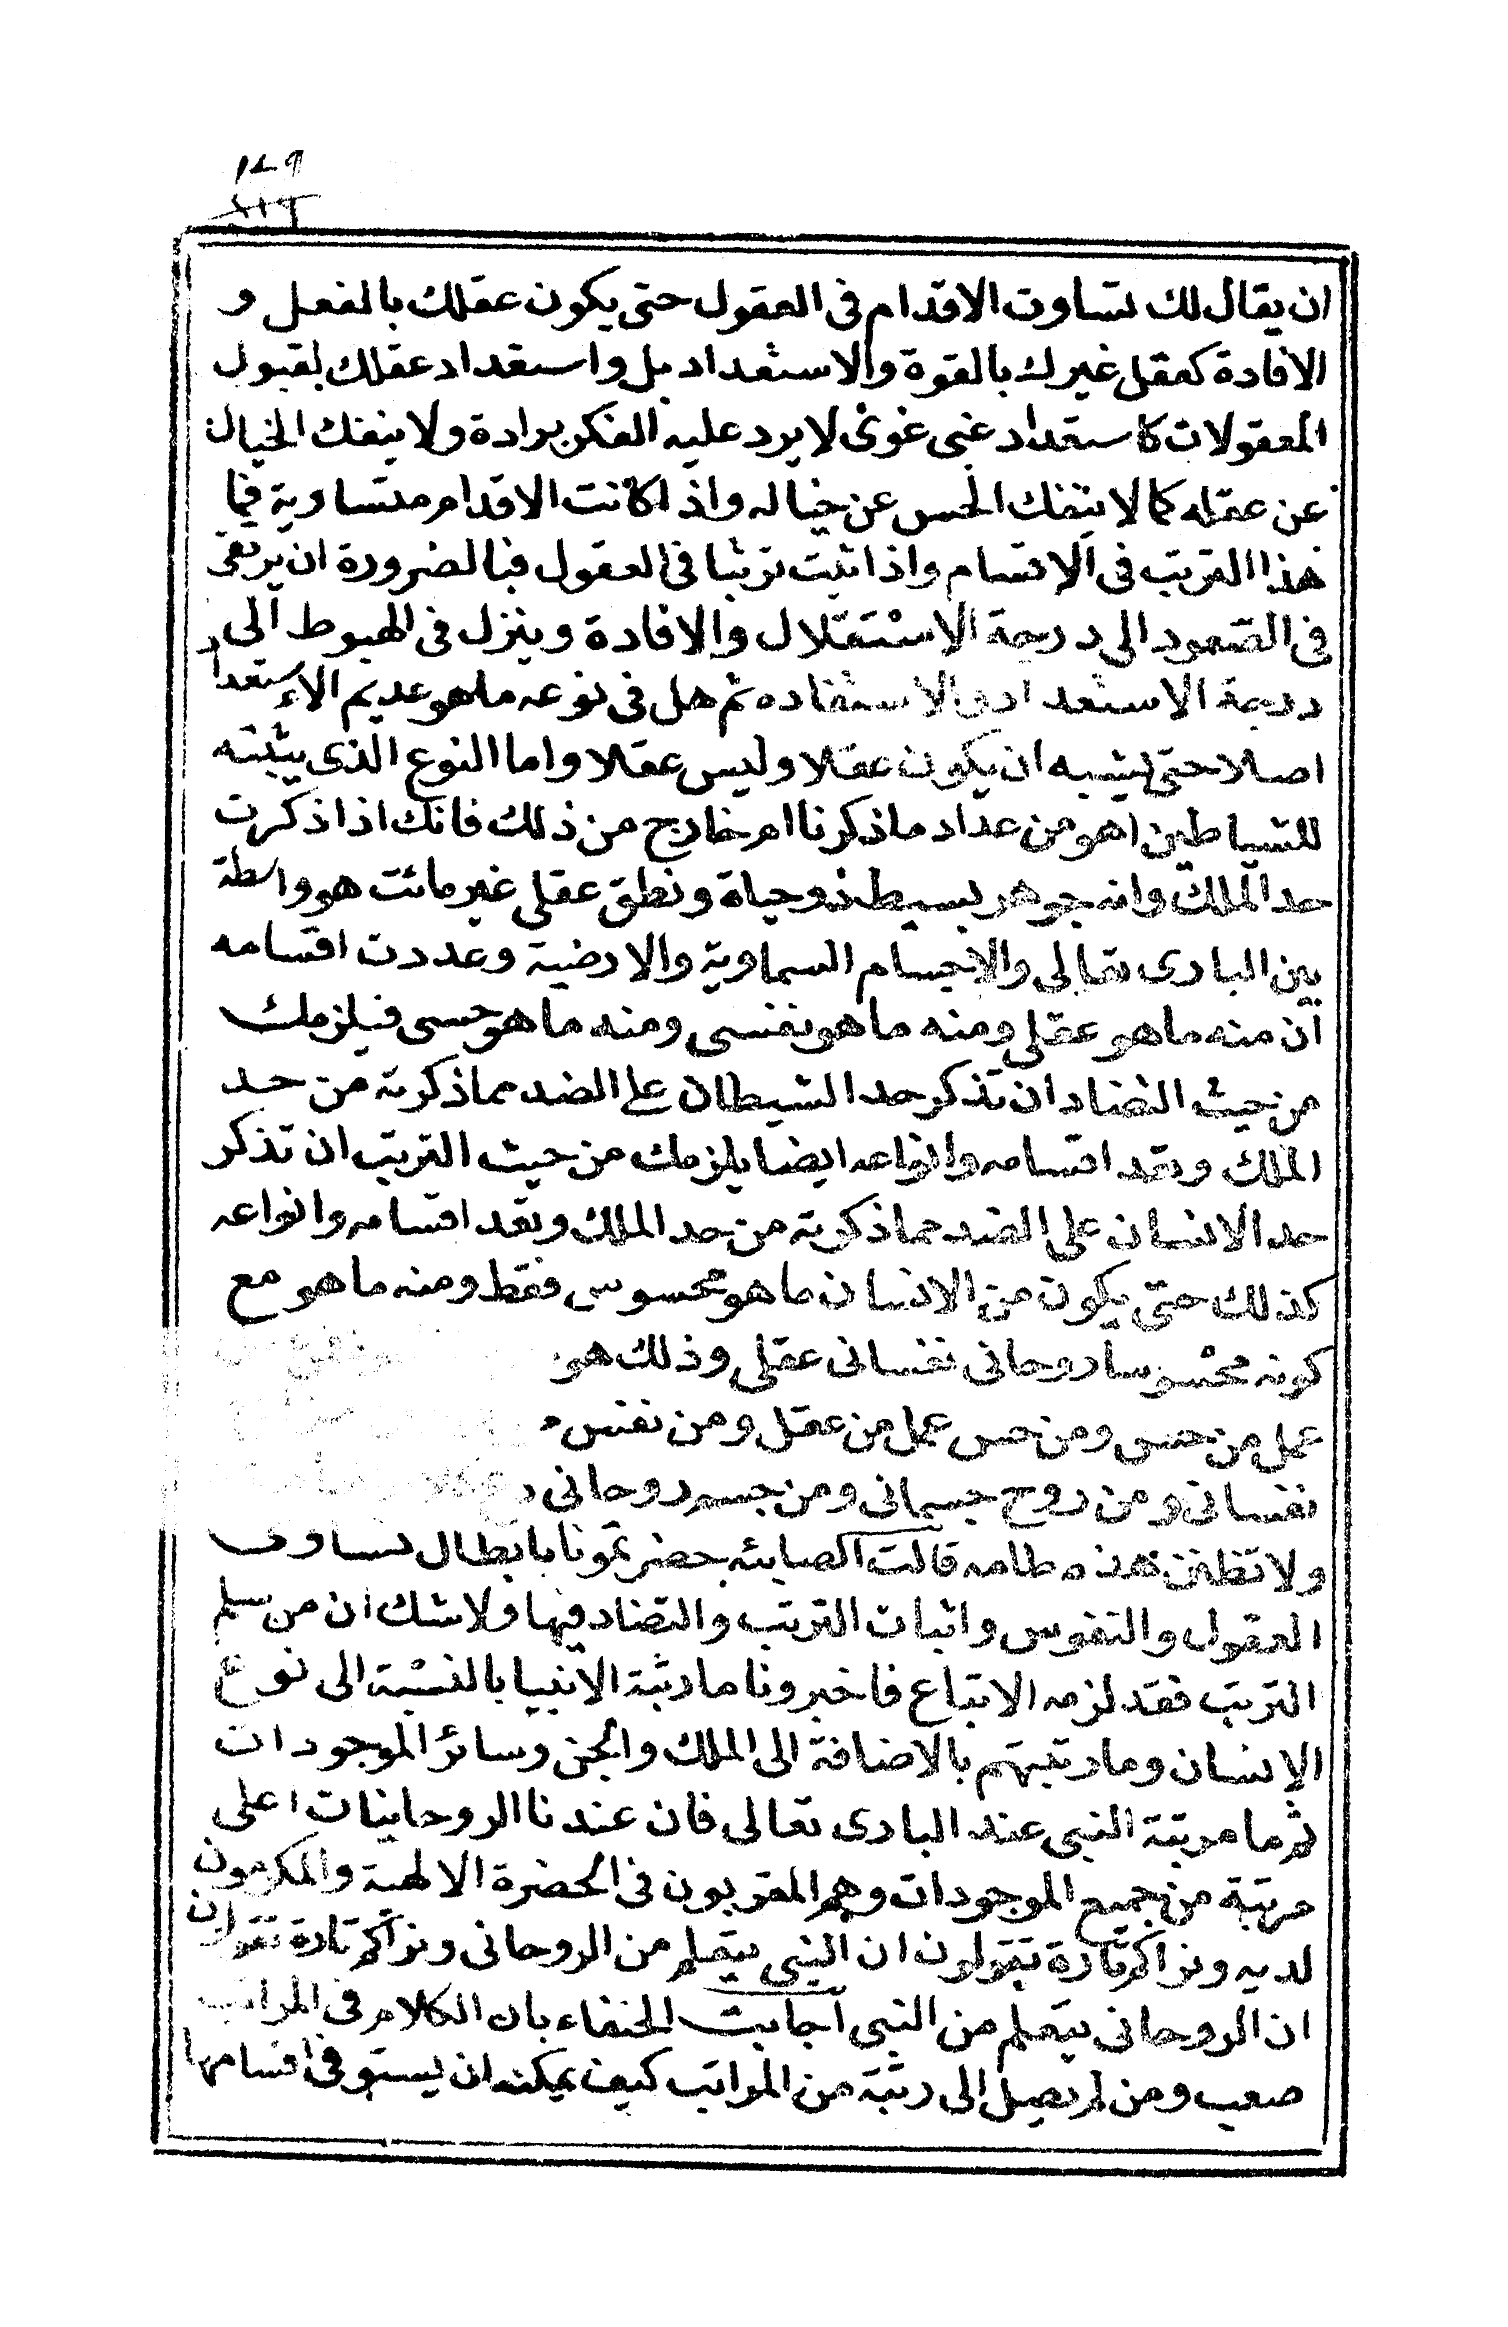 ١٤٩
ان يقال لك تساوت الاقدام فى العقول حتى يكون عقلك بالفعل و
الافادة كعقل غيرك بالقوة والاستعداد بل واستعداد عقلك لقبول
المعقولات كاستعداد غبى غوى لا يرد عليه الفكر برادة ولا ينفك الخيال
عن عقله كما لا ينفك الحس عن خياله واذا كانت الاقدام متساوية فما
هذا الترتب فى الاقسام واذا ثبت ترتبا فى العقول فبالضرورة ان يرتقى
فى الصعود الى درجة الاستقلال والافادة وينزل فى الهبوط الى
درجة الاستعداد والاستفاده ثم هل فى نوعه ما هو عديم الاستعداد
اصلا حتى يشبه ان يكون عقلا وليس عقلا واما النوع الذى يثبته
للشياطين اهو من عداد ما ذكرنا ام خارج من ذلك فانك اذا ذكرت
حد الملك وانه جوهر بسيط ذو حياة ونطق عقلى غير مائت هو واسطة
بين البارى تعالى والاجسام السماوية والارضية وعددت اقسامه
ان منه ما هو عقلى ومنه ما هو نفسى ومنه ما هو حسى فيلزمك
من حيث التضاد ان تذكر حد الشيطان على الضد مما ذكرته من حد
الملك وتعد اقسامه وانواعه ايضا يلزمك من حيث الترتب ان تذكر
حد الانسان على الضد مما ذكرته من حد الملك وتعد اقسامه وانواعه
كذلك حتى يكون من الانسان ما هو محسوس فقط ومنه ما هو مع
كونه محسوسا روحانى نفسانى عقلى وذلك هو
عمل من حس ومن حس عمل من عقل ومن نفس
نفسانى ومن روح جسمانى ومن جسم روحانى
ولا تظنن هذه طامه قالت الصابئه حضرتمونا بابطال تساوى
العقول والنفوس واثبات الترتب والتضاد فيها ولا شك ان من سلم
الترتب فقد لزمه الاتباع فاخبرونا ما رتبة الانبيا بالنسبة الى نوع
الانسان وما رتبتهم بالاضافة الى الملك والجن وسائر الموجودات
ثم ما مرتبة النبى عند البارى تعالى فان عندنا الروحانيات اعلى
مرتبة من جميع الموجودات وهم المقربون فى الحضرة الالهية والمكرمون
لديه ونراكم تارة تقولون ان النبى يتعلم من الروحانى ونراكم تارة تقولون
ان الروحانى يتعلم من النبى اجابت الحنفاء بان الكلام فى المراتب
صعب ومن لم يصل الى رتبة من المراتب كيف يمكنه ان يستوفى اقسامها